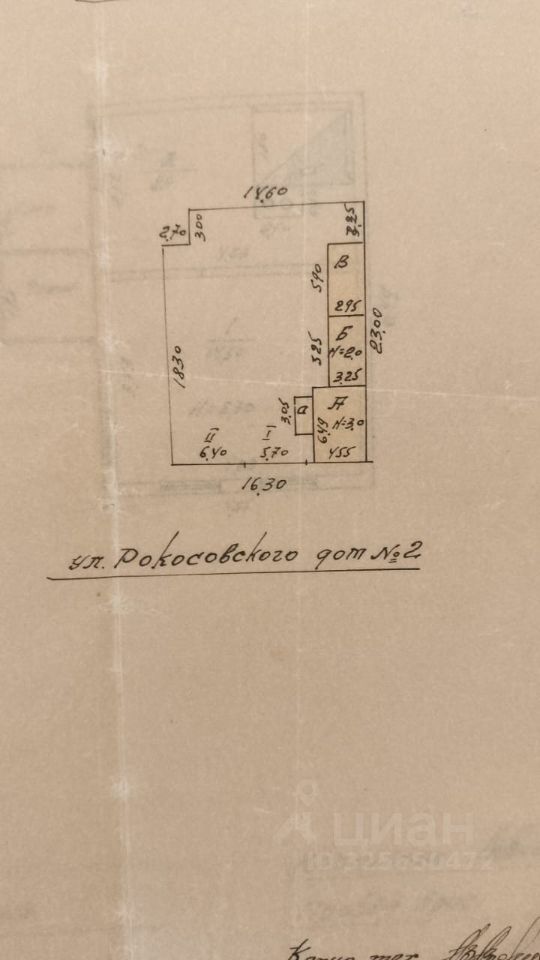 14.60
2.70
3.00
3.25
В
5.90
2.95
23.00
Б
5.25
H=2.0
3.25
18.30
А
а
3.05
6.49
H=3.0
II
I
6.40
5.70
4.55
16.30
ул. Рокосовского дом №2
циан
ID 325650472